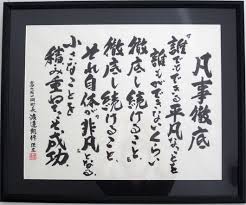 凡事徹底
誰でもできる平凡なことを
誰もができないくらい、
徹底し続けること、
徹底し続けること、
それ自体が非凡となる
小さなことを
積み重ねてこそ成功